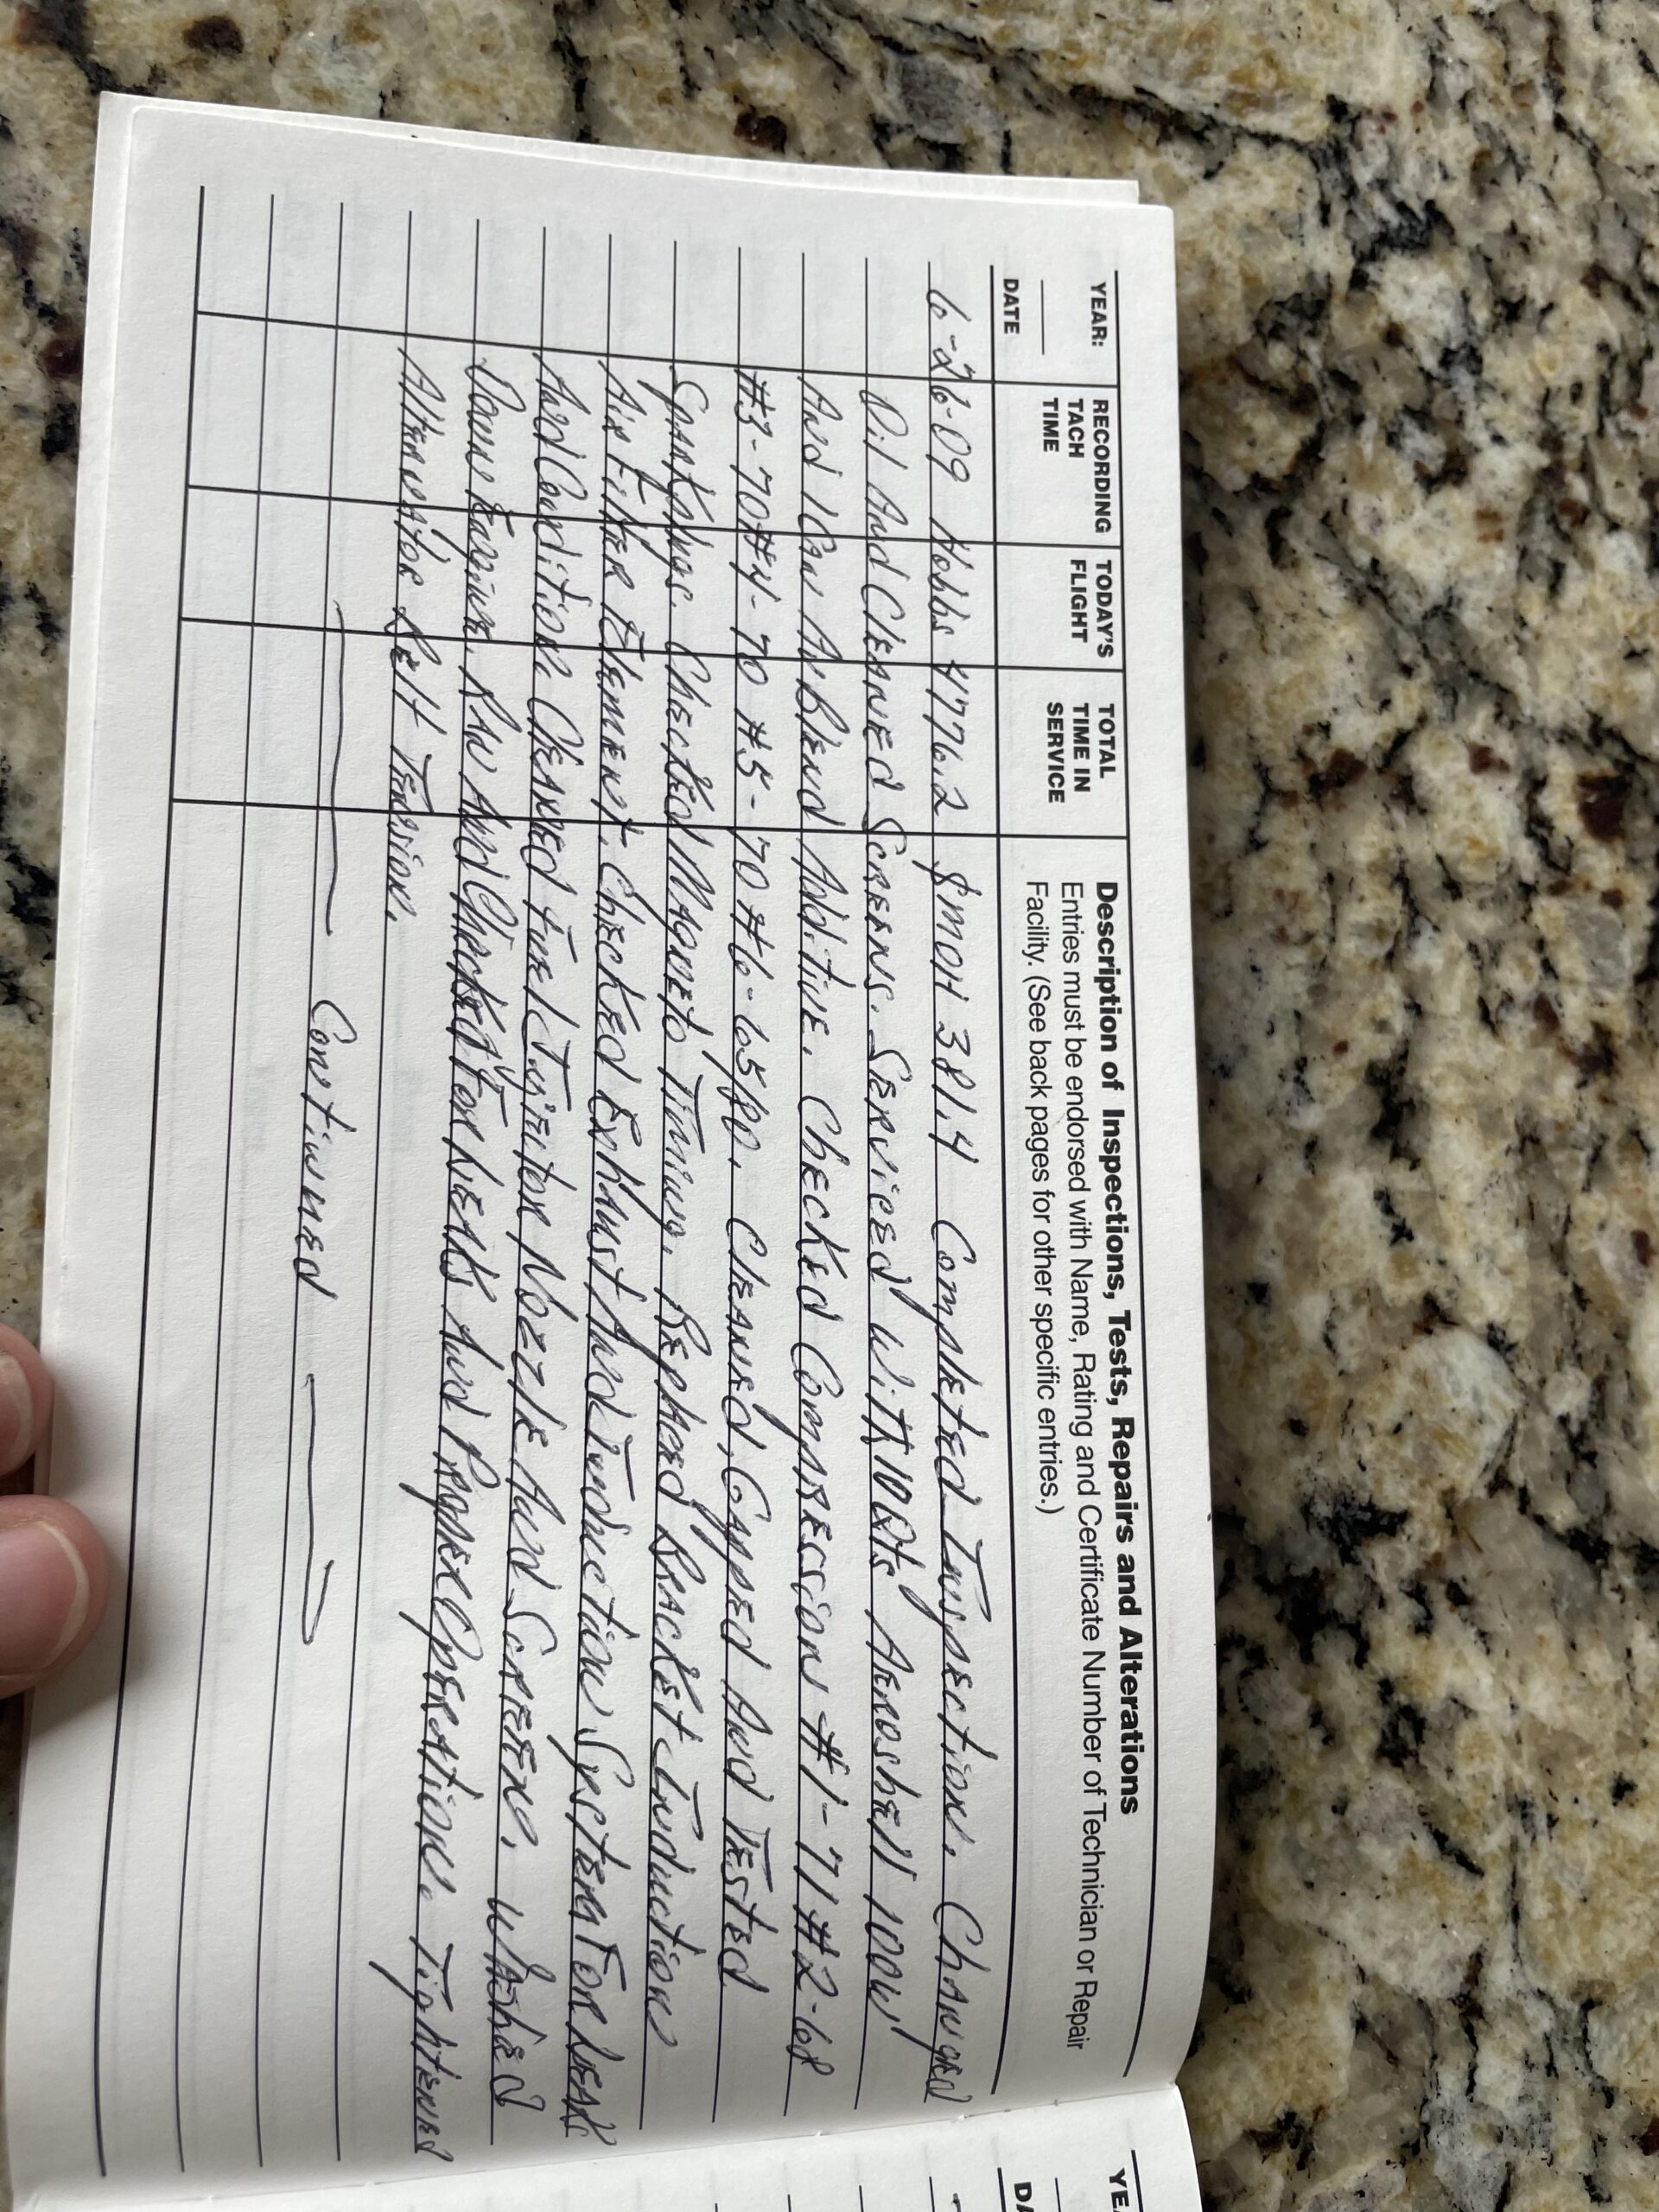 YEAR:
RECORDING TACH TIME
TODAY'S FLIGHT
TOTAL TIME IN SERVICE
Description of Inspections, Tests, Repairs and Alterations
Entries must be endorsed with Name, Rating and Certificate Number of Technician or Repair
Facility. (See back pages for other specific entries.)
DATE
6-26-09 Hobbs 4776.2 SMOH 381.4 Completed Inspection. Changed
Oil And Cleaned Screens. Serviced With 10 Qts Aeroshell 100W
And 1 Can AvBlend Additive. Checked Compressions #1-71 #2-68
#3-70 #4-70 #5-70 #6-65/80. Cleaned, Gapped And Tested
Spark Plugs. Checked Magneto Timing. Replaced Bracket Induction
Air Filter Element. Checked Exhaust And Induction System For Leaks
And Condition. Cleaned Fuel Injitor Nozzle And Screens. Washed
Down Engine. Ran And Checked For Leaks And Proper Operation. Tightened
Alternator Belt Tension.
Continued
YEA
DA